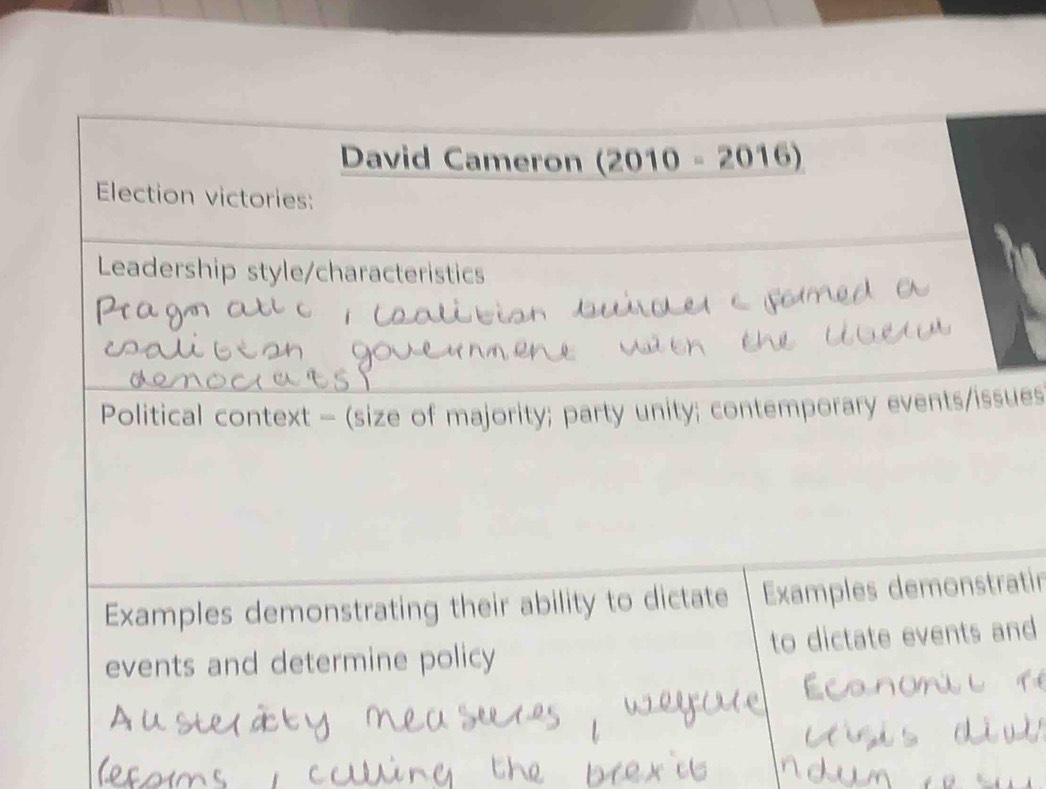 David Cameron (2010 - 2016)
Election victories:
Leadership style/characteristics
Pragmatic, coalition builder formed a
coalition government with the liberal
democrats
Political context – (size of majority; party unity; contemporary events/issues
Examples demonstrating their ability to dictate
events and determine policy
Austerity measures, welfare
reforms, calling the brexit
Examples demonstratin
to dictate events and
Economic re
crisis